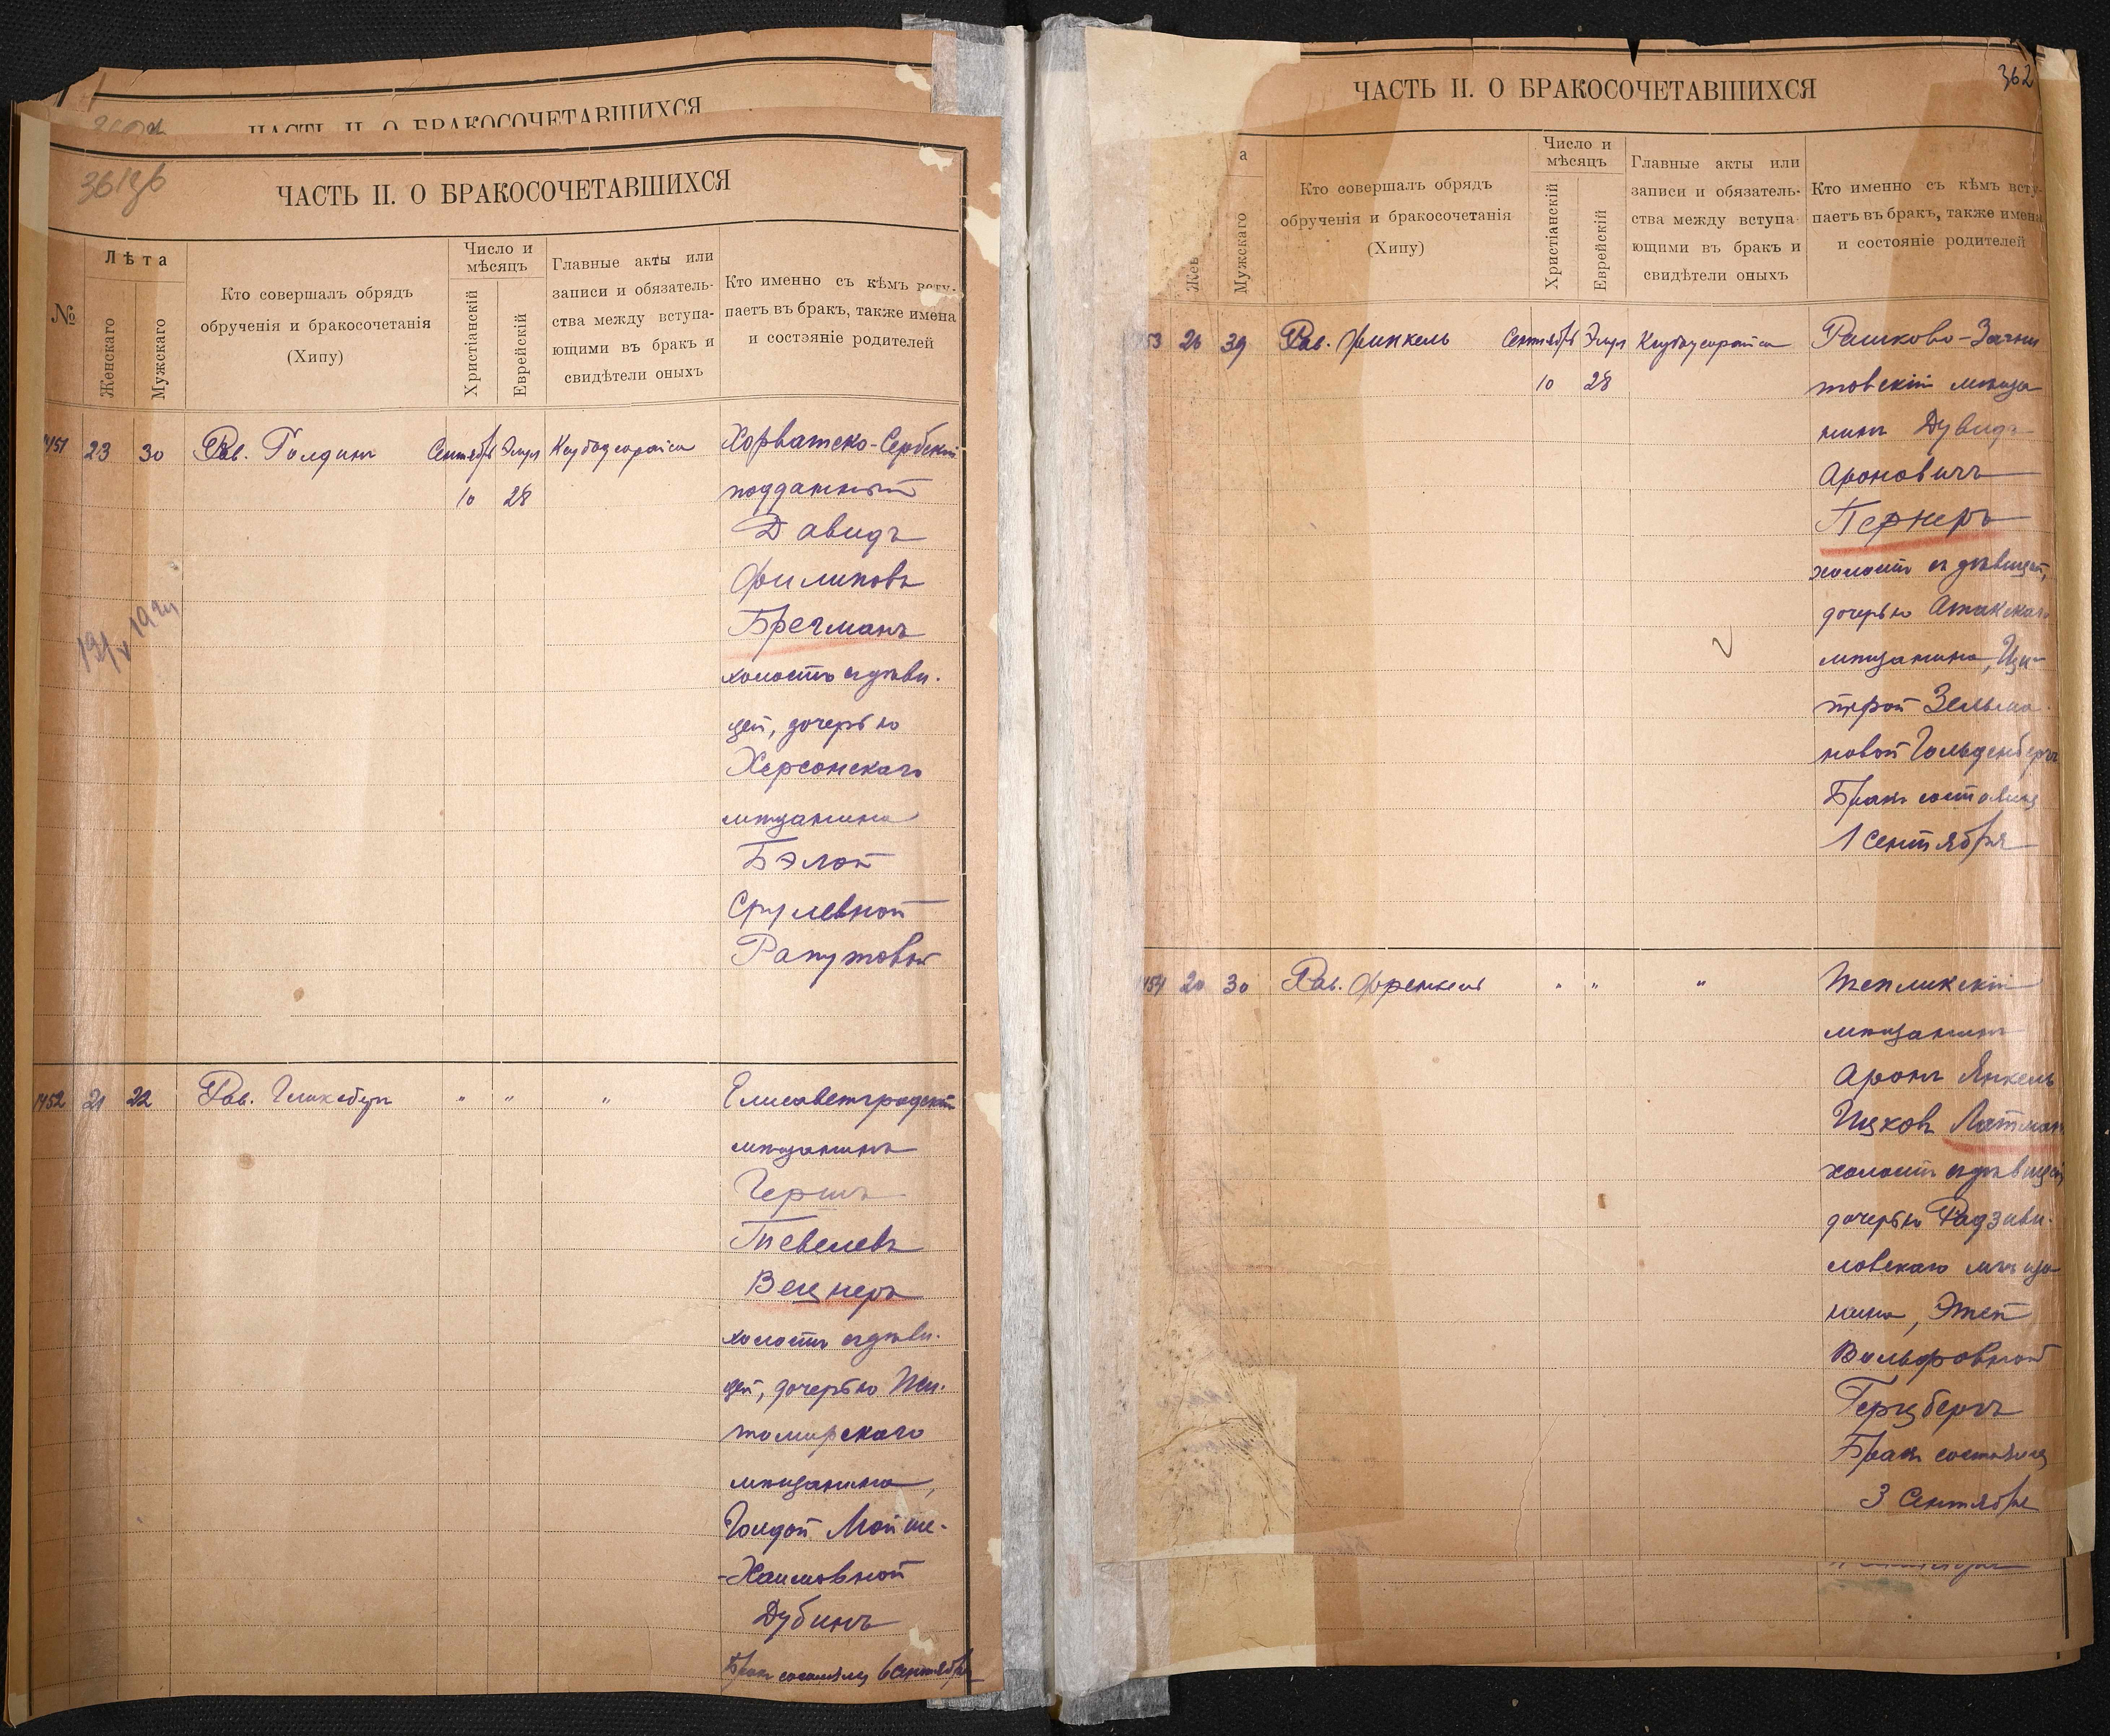 ЧАСТЬ II. О БРАКОСОЧЕТАВШИХСЯ
361об
ЧАСТЬ II. О БРАКОСОЧЕТАВШИХСЯ
№
Лѣта
Женскаго
Мужскаго
Кто совершалъ обрядъ
обрученія и бракосочетанія
(Хипу)
Число и
мѣсяцъ
Христіанскій
Еврейскій
Главные акты или
записи и обязатель-
ства между вступа-
ющими въ бракъ и
свидѣтели оныхъ
Кто именно съ кѣмъ всту-
паетъ въ бракъ, также имена
и состэяніе родителей
1451 23 30 Рав. Голдинъ Сентябрь Элул
10 28
Хорватско-Сербскій
подданный
Давидъ
Филиповъ
Брегманъ
холостъ съ дѣви-
цей, дочерью
Херсонскаго
мѣщанина
Бэлой
Срулевной
Рапутовой
1452 21 22 Рав. Гликсбергъ " " "
Елисаветградскій
мѣщанинъ
Гершъ
Тевелевъ
Вецнеръ
холостъ съ дѣви-
цей, дочерью Жи-
томирскаго
мѣщанина,
Голдой Мойше-
-Хаимовной
Дубинъ
Бракъ состоялся 6 Сентября
362
ЧАСТЬ II. О БРАКОСОЧЕТАВШИХСЯ
а
Жен
Мужскаго
Кто совершалъ обрядъ
обрученія и бракосочетанія
(Хипу)
Число и
мѣсяцъ
Христіанскій
Еврейскій
Главные акты или
записи и обязатель-
ства между вступа-
ющими въ бракъ и
свидѣтели оныхъ
Кто именно съ кѣмъ всту-
паетъ въ бракъ, также имена
и состояніе родителей
53 26 39 Рав. Финкель Сентябрь Элул
10 28
Рашково-
мѣща
нинъ Дувидъ
Ароновичъ
Пернеръ
холостъ съ дѣвицей,
дочерью Атакскаго
мѣщанина, Ци-
прой Зельма-
новой Гольденбергъ
Бракъ состоялся
1 Сентября
454 20 30 Рав. Френкель " " "
Тепликскій
мѣщанинъ
Аронъ Янкель
Ицковъ Латман
холостъ съ дѣвицей
дочерью Радзиви-
ловскаго мѣща-
нина, Этей
Вольфовной
Герцбергъ
Бракъ состоялся
3 Сентября